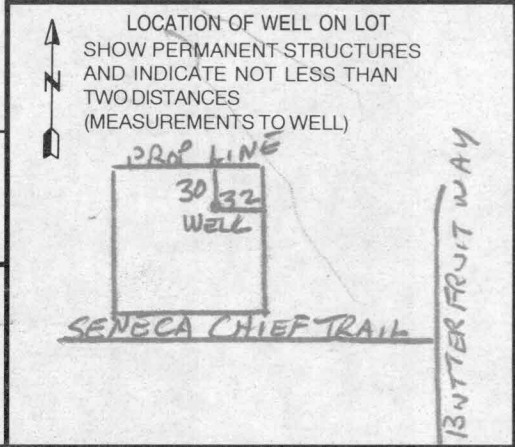 LOCATION OF WELL ON LOT
SHOW PERMANENT STRUCTURES
AND INDICATE NOT LESS THAN
TWO DISTANCES
(MEASUREMENTS TO WELL)
N
PROP LINE
30 32
WELL
SENECA CHIEF TRAIL
BNTTERFRUIT WAY